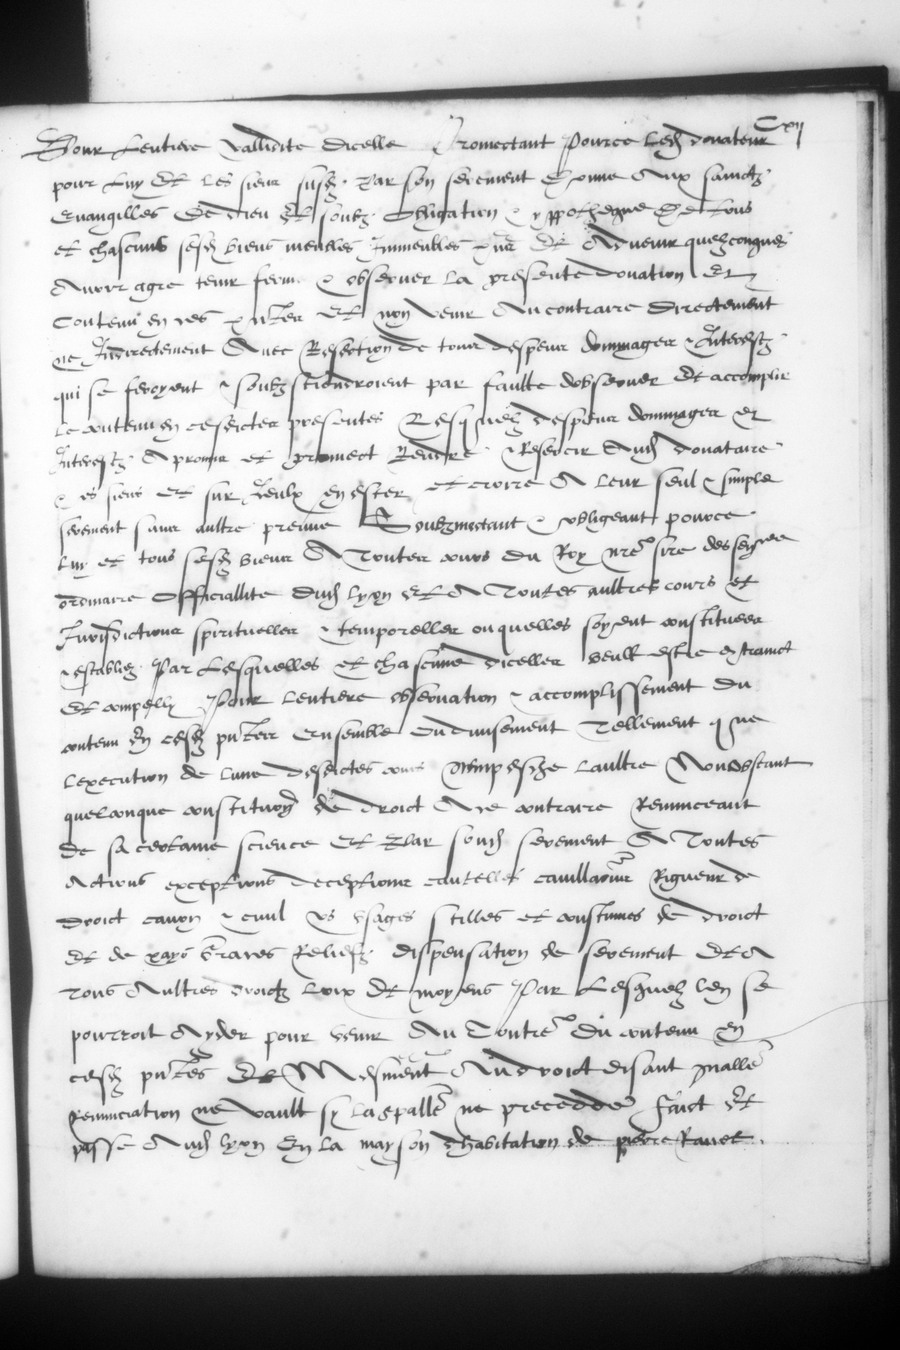 Cxij
Pour lentiere vallidite dicelle Promectant pource led donateur
pour luy et les siens susd. par son serement donne aux sainctz
Euangilles de dieu et soubz obligation & yppothegue de tous
et chascuns sesd biens meubles Immeubles pns et aduenir quelzconques
Auoir agre tenir ferme & obseruer la presente donation et
contenu en ces pntes et non venir au contraire directement
ne Indirectement Auec Reffection de tous despens dommages & Interestz
qui se feroyent & soubz stiendroient par faulte dobseruer et accomplir
le contenu en cesdictes presentes Lesquelz despens dommages et
Interestz A promis et promect Rendre & Reffercir Aud donataire
& es siens et sur Iceulx en ester et croire A leur seul & simple
serement sans aultre preuue Soubzmectant & obligeant pource
luy et tous sesd biens A Toutes cours du Roy nre sire des
ordinaire officiallite dud lyon et A Toutes aultres cours et
Jurisdictions spirituelles & temporelles ou quelles soyent constituees
& establiez Par Lesquelles et chascune dicelles veult estre contrainct
et compelly Pour lentiere obseruation & accomplissement du
contenu En cesd pntes Ensemble ou diuisement Tellement que
lexecution de lune desdictes cours nempesche laultre Nonobstant
quelconque constitution de droict A ce contraire Renunceant
de sa certaine science et Par sond serement A Toutes
Actions exceptions deceptions cautelles cauillations Rigueur de
droict canon & ciuil us vsages stilles et coustumes de droict
et de pays graces Reliefz dispensation de serement et A
tous Aultres droictz loix et moyens Par Lesquelz len se
pourroit Ayder pour venir Au Contre du contenu en
cesd pntes Et Mesment Au droict disant
Renunciation ne vault sy la spalle ne precedde Faict et
passe Aud lyon En la mayson dhabitation de pierre Rauet.